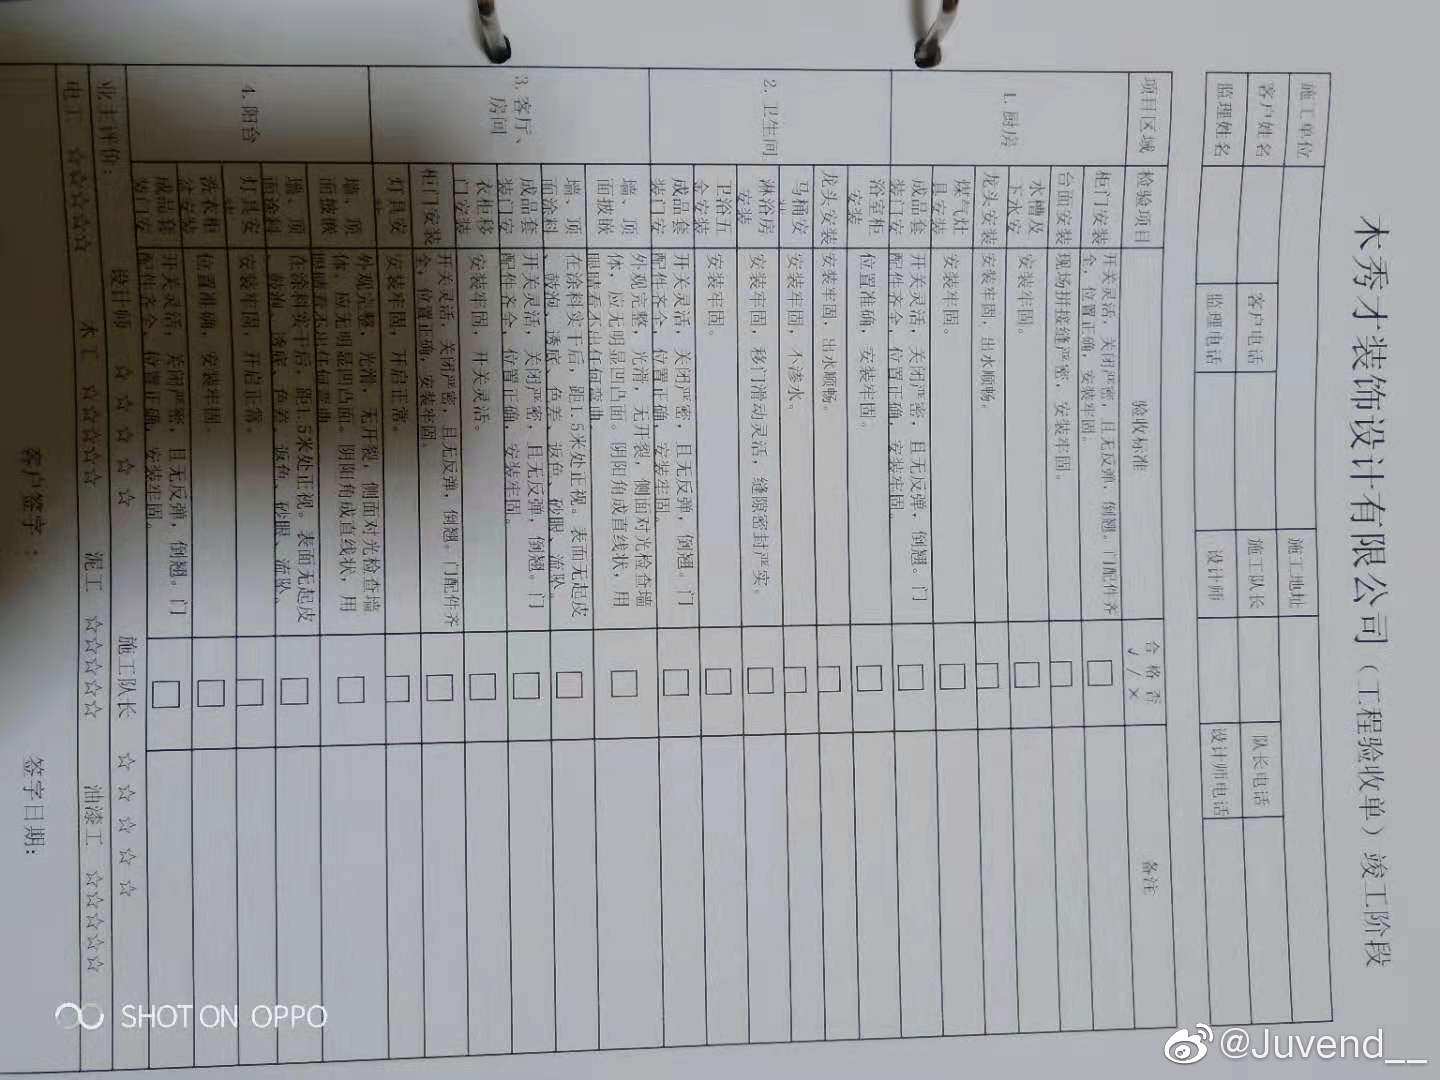 木秀才装饰设计有限公司（工程验收单）竣工阶段
施工单位 施工地址
客户姓名 客户电话 施工队长 队长电话
监理姓名 监理电话 设计师 设计师电话
项目区域 检验项目 验收标准 合格否 √/× 备注
1.厨房
柜门安装 开关灵活，关闭严密，且无反弹，倒翘。门配件齐全，位置正确，安装牢固。 □
台面安装 现场拼接缝严密，安装牢固。 □
水槽及下水安 安装牢固。 □
龙头安装 安装牢固，出水顺畅。 □
煤气灶具安装 安装牢固。 □
成品套装门安 开关灵活，关闭严密，且无反弹，倒翘。门配件齐全，位置正确，安装牢固。 □
2.卫生间
浴室柜安装 位置准确，安装牢固。 □
龙头安装 安装牢固，出水顺畅。 □
马桶安 安装牢固，不渗水。 □
淋浴房安装 安装牢固，移门滑动灵活，缝隙密封严实。 □
卫浴五金安装 安装牢固。 □
成品套装门安 开关灵活，关闭严密，且无反弹，倒翘。门配件齐全，位置正确，安装牢固。 □
3.客厅、房间
墙、顶面披嵌 外观完整，光滑，无开裂，侧面对光检查墙体，应无明显凹凸面。阴阳角成直线状，用眼睛看不出任何弯曲 □
墙、顶面涂料 在涂料实干后，距1.5米处正视。表面无起皮、鼓泡、透底、色差、返色、砂眼、流坠。 □
成品套装门安 开关灵活，关闭严密，且无反弹，倒翘。门配件齐全，位置正确，安装牢固。 □
衣柜移门安装 安装牢固，开关灵活。 □
柜门安装 开关灵活，关闭严密，且无反弹，倒翘。门配件齐全，位置正确，安装牢固。 □
灯具安 安装牢固，开启正常。 □
4.阳台
墙、顶面披嵌 外观完整，光滑，无开裂，侧面对光检查墙体，应无明显凹凸面。阴阳角成直线状，用眼睛看不出任何弯曲 □
墙、顶面涂料 在涂料实干后，距1.5米处正视。表面无起皮、鼓泡、透底、色差、返色、砂眼、流坠。 □
灯具安 安装牢固，开启正常。 □
洗衣柜盆安装 位置准确，安装牢固。 □
成品套装门安 开关灵活，关闭严密，且无反弹，倒翘。门配件齐全，位置正确，安装牢固。 □
业主评价： 设计师 ☆ ☆ ☆ ☆ ☆ 施工队长 ☆ ☆ ☆ ☆ ☆
电工 ☆☆☆☆☆ 木工 ☆☆☆☆☆ 泥工 ☆☆☆☆☆ 油漆工 ☆☆☆☆☆
客户签字： 签字日期：
SHOT ON OPPO
@Juvend__